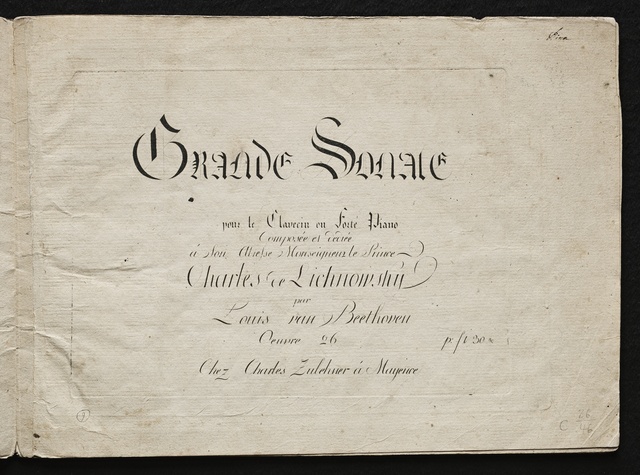 GRANDE SONATE
pour le Clavecin ou Forté Piano
Composée et dédiée
à Son Altesse Monseigneur le Prince
Charles de Lichnowsky
par
Louis van Beethoven
Oeuvre 26
Chez Charles Zulehner à Mayence